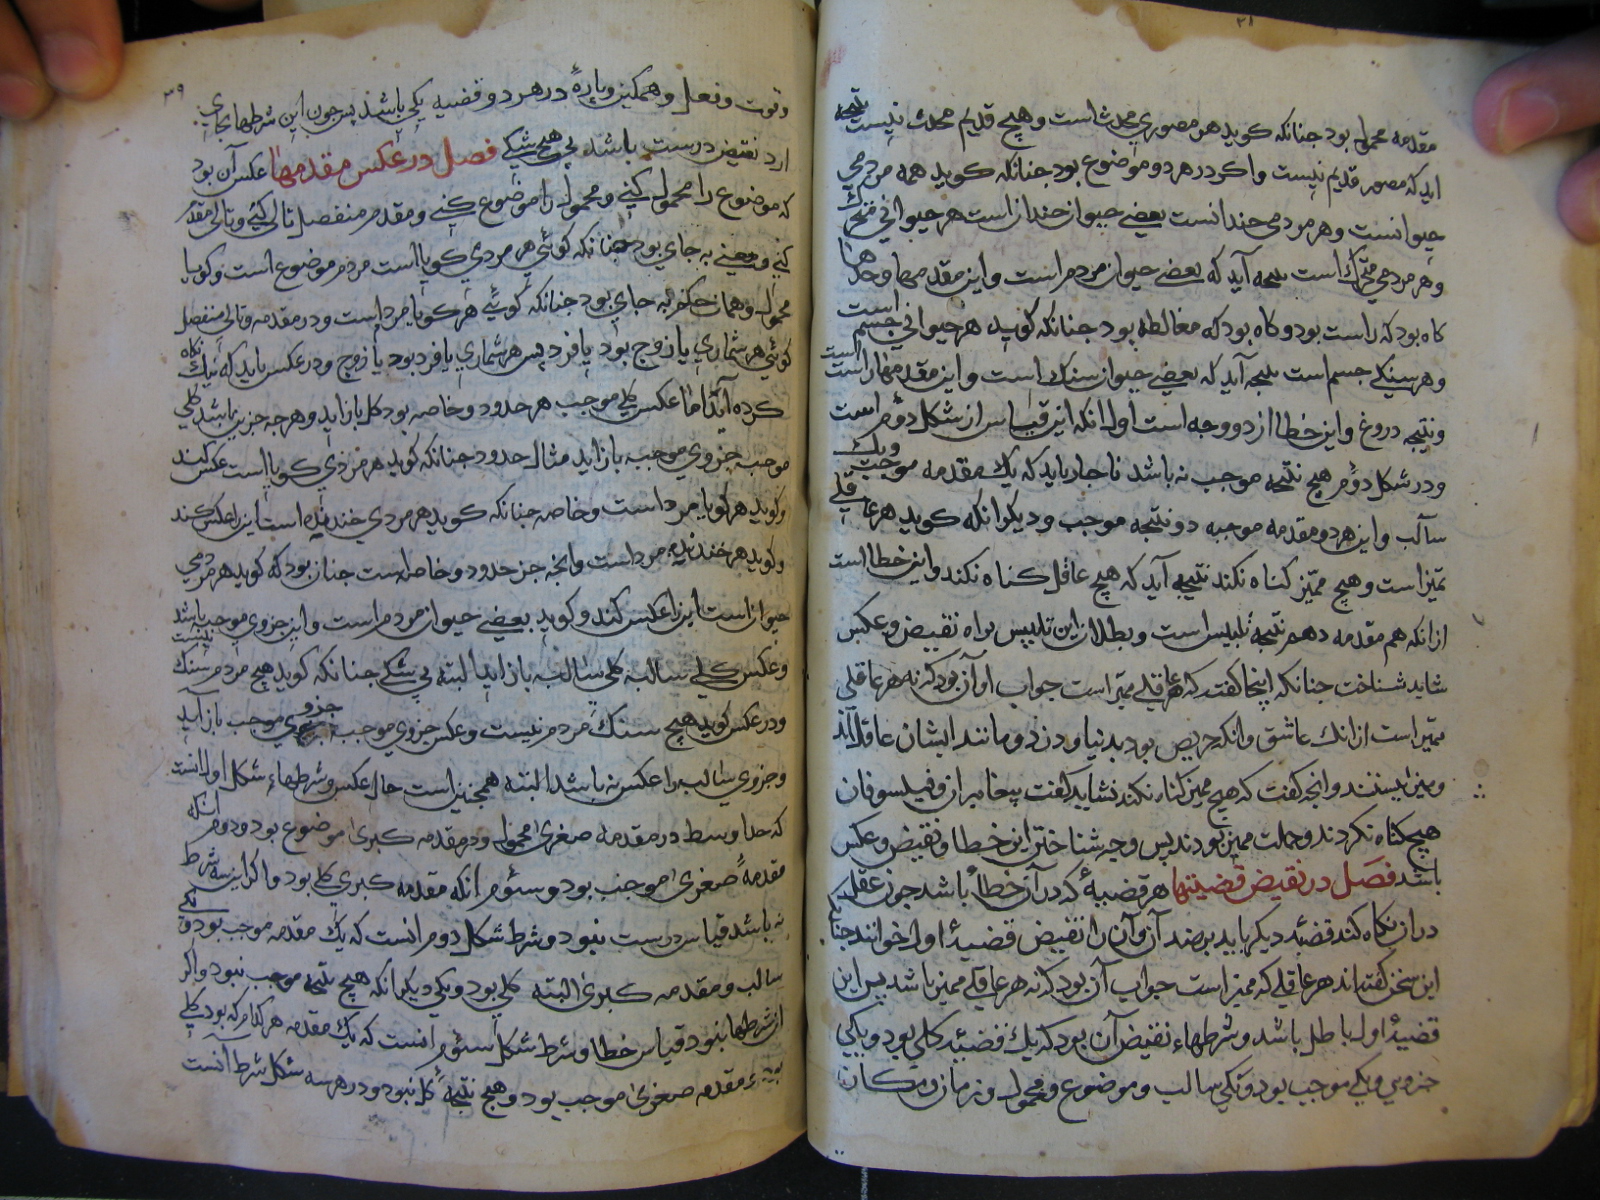 ۳۸
مقدمه محمول بود جنانکه کوید هر مصوری محدث است و هیچ قدیم محدث نیست نتیجه
اید که مصور قدیم نیست واکر در هر دو موضوع بود جنانکه کوید همه مردمی
حیوانست و هر مردمی خندانست بعضی حیوان خندان است هر حیوانی متحرک
و هر مردمی متحرک است نتیجه آید که بعضی حیوان مردم است و این مقدمها و حدها
کاه بود که راست بود و کاه بود که مغالطه بود جنانکه کوید هر حیوانی جسم است
و هر سنکی جسم است نتیجه آید که بعضی حیوان سنک است و این مقدمها راست است
و نتیجه دروغ و این خطا از دو وجه است اول انکه این قیاس از شکل دوم است
و در شکل دوم هیچ نتیجه موجب نه باشد ناجار باید که یک مقدمه موجب ویک
سالب و این هر دو مقدمه موجبه دو نتیجه موجب و دیکر انکه کوید هر عاقلی
ممیز است و هیچ ممیز کناه نکند نتیجه آید که هیچ عاقل کناه نکند و این خطا است
از انکه هم مقدمه و هم نتیجه تلبیس است و بطلان این تلبیس براه نقیض و عکس
شاید شناخت جنانکه اینجا کفت که هر عاقلی ممیز است جواب او آن بود که نه هر عاقلی
ممیز است از انک عاشق وانکه حریص بود بدنیا و دزد و مانند ایشان عاقل اند
و ممیز نیستند وانجه کفت که هیچ ممیز کناه نکند نشاید کفت پیغامبران و فیلسوفان
هیچ کناه نکردند و جملت ممیز بودند پس وجه شناختن این خطا و نقیض و عکس
باشد فصل در نقیض قضیتها هر قضیهٔ که در آن خطا باشد جون عقل
در ان نکاه کند قضیهٔ دیکر باید بر ضد آن و آن را نقیض قضیهٔ اول خوانند جنانکه
این سخن کفته اند هر عاقلی که ممیز است جواب آن بود که نه هر عاقلی ممیز باشد پس این
قضیهٔ اول باطل باشد و شرطهاء نقیض آن بود که یک قضیه کلی بود و یکی
جزوی و یکی موجب بود و یکی سالب و موضوع و محمول و زمان و مکان
۳۹
و قوت و فعل و همکین و پارهٔ در هر دو قضیه یکی باشد پس جون این شرطها بجای
ارد نقیض درست باشد بی هیچ شکی فصل در عکس مقدمها عکس آن بود
که موضوع را محمول کنی و محمول را موضوع کنی و مقدم منفصل تالی کنی و تالی مقدم
کنی و معنی به جای بود جنانکه کوئی هر مردی کویا است مردم موضوع است و کویا
محمول و همان حکم به جای بود جنانکه کوئی هر کویا مردم است و در مقدمه و تالی منفصل
کوئی هر شماری یا زوج بود یا فرد پس هر شماری یا فرد بود یا زوج و در عکس باید که نیک نکاه
کرده آید اما عکس کلی موجب هر حدود و خاصه بود کل باز اید و هر جه جز این باشد کلی
موجب جزوی موجب باز اید مثال حدود جنانکه کوید هر مردی کویا است عکس کند
و کوید هر کویا مردم است و خاصه جنانکه کوید هر مردی خندنده است این را عکس کند
و کوید هر خندنده مردم است وانجه جز حدود و خاصه است جنان بود که کوید هر مردمی
حیوان است این را عکس کند و کوید بعضی حیوان مردم است و این جزوی موجب باشد
و عکس کلی سالبه کلی سالب باز اید البته بی شکی جنانکه کوید هیچ مردم سنک نیست
و در عکس کوید هیچ سنک مردم نیست و عکس جزوی موجب جزوی موجب باز آید
و جزوی سالب را عکس نه باشد البته همجنین است حال عکس و شرطهاء شکل اول انست
که حد اوسط در مقدمه صغری محمول و در مقدمه کبری موضوع بود و دوم انکه
مقدمهٔ صغری موجب بود و سئوم انکه مقدمه کبری کلی بود واکر این سه شرط
نه باشد قیاس درست نبود و شرط شکل دوم انست که یک مقدمه موجب بود و یکی
سالب و مقدمه کبری البته کلی بود و یکی دیکر انکه هیچ نتیجه موجب نبود واکر
این شرطها نبود قیاس خطا و شرط شکل سئوم انست که یک مقدمه هر کدام که بود کلی
بود و مقدمه صغری موجب بود و هیچ نتیجهٔ کل نبود و در هر سه شکل شرط آنست